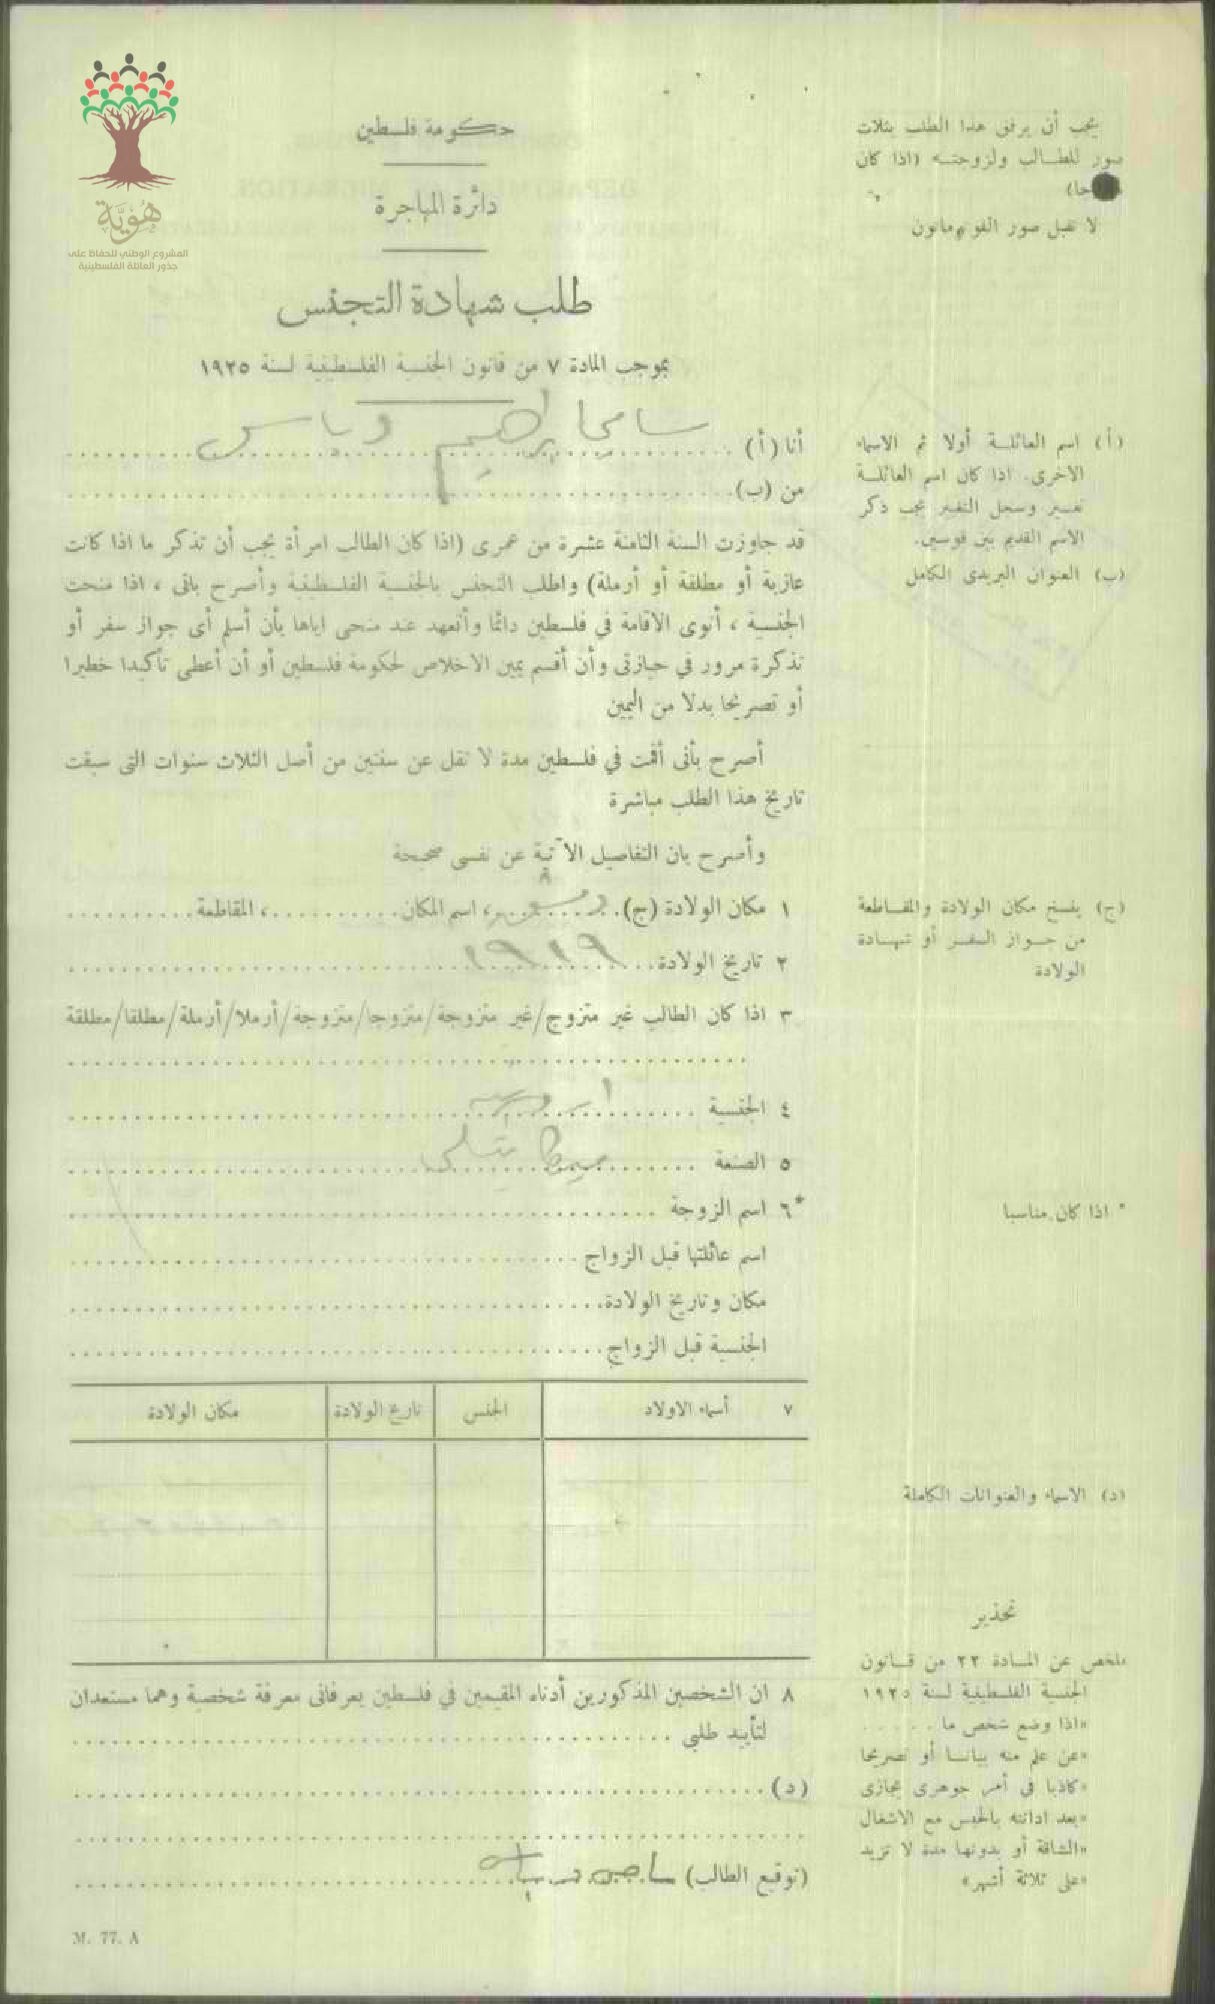 هُويَّة
المشروع الوطني للحفاظ على
جذور العائلة الفلسطينية
حكومة فلسطين
دائرة المهاجرة
طلب شهادة التجنس
بموجب المادة ٧ من قانون الجنسية الفلسطينية لسنة ١٩٢٥
يجب أن يرفق هذا الطلب بثلاث
صور للطالب ولزوجته (اذا كان
لا تقبل صور الفوتوماتون
أنا (أ)
من (ب)
(أ) اسم العائلة أولا ثم الاسماء
الاخرى. اذا كان اسم العائلة
تغير وسجل التغيير يجب ذكر
الاسم القديم بين قوسين.
(ب) العنوان البريدى الكامل
قد جاوزت السنة الثامنة عشرة من عمرى (اذا كان الطالب امرأة يجب أن تذكر ما اذا كانت
عازبة أو مطلقة أو أرملة) واطلب التجنس بالجنسية الفلسطينية وأصرح بانى ، اذا منحت
الجنسية ، أنوى الاقامة في فلسطين دائما وأتعهد عند منحى اياها بأن أسلم أى جواز سفر أو
تذكرة مرور في حيازتى وأن أقسم يمين الاخلاص لحكومة فلسطين أو أن أعطى تأكيدا خطيرا
أو تصريحا بدلا من اليمين
أصرح بأنى أقمت في فلسطين مدة لا تقل عن سنتين من أصل الثلاث سنوات التى سبقت
تاريخ هذا الطلب مباشرة
وأصرح بان التفاصيل الآتية عن نفسى صحيحة
١ مكان الولادة (ج) ، اسم المكان ، المقاطعة
٢ تاريخ الولادة ١٩١٩
(ج) ينسخ مكان الولادة والمقاطعة
من جواز السفر أو شهادة
الولادة
٣ اذا كان الطالب غير متزوج/غير متزوجة/متزوجا/متزوجة/أرملا/أرملة/مطلقا/مطلقة
٤ الجنسية
٥ الصنعة
*٦ اسم الزوجة
* اذا كان مناسبا
اسم عائلتها قبل الزواج
مكان وتاريخ الولادة
الجنسية قبل الزواج
٧ أسماء الاولاد
الجنس
تاريخ الولادة
مكان الولادة
(د) الاسماء والعنوانات الكاملة
٨ ان الشخصين المذكورين أدناه المقيمين في فلسطين يعرفانى معرفة شخصية وهما مستعدان
لتأييد طلبي
(د)
(توقيع الطالب)
تحذير
ملخص عن المادة ٢٢ من قانون
الجنسية الفلسطينية لسنة ١٩٢٥
«اذا وضع شخص ما . . . . .
«عن علم منه بيانا أو تصريحا
«كاذبا فى أمر جوهرى يجازى
«بعد ادانته بالحبس مع الاشغال
«الشاقة أو بدونها مدة لا تزيد
«على ثلاثة أشهر»
M. 77. A